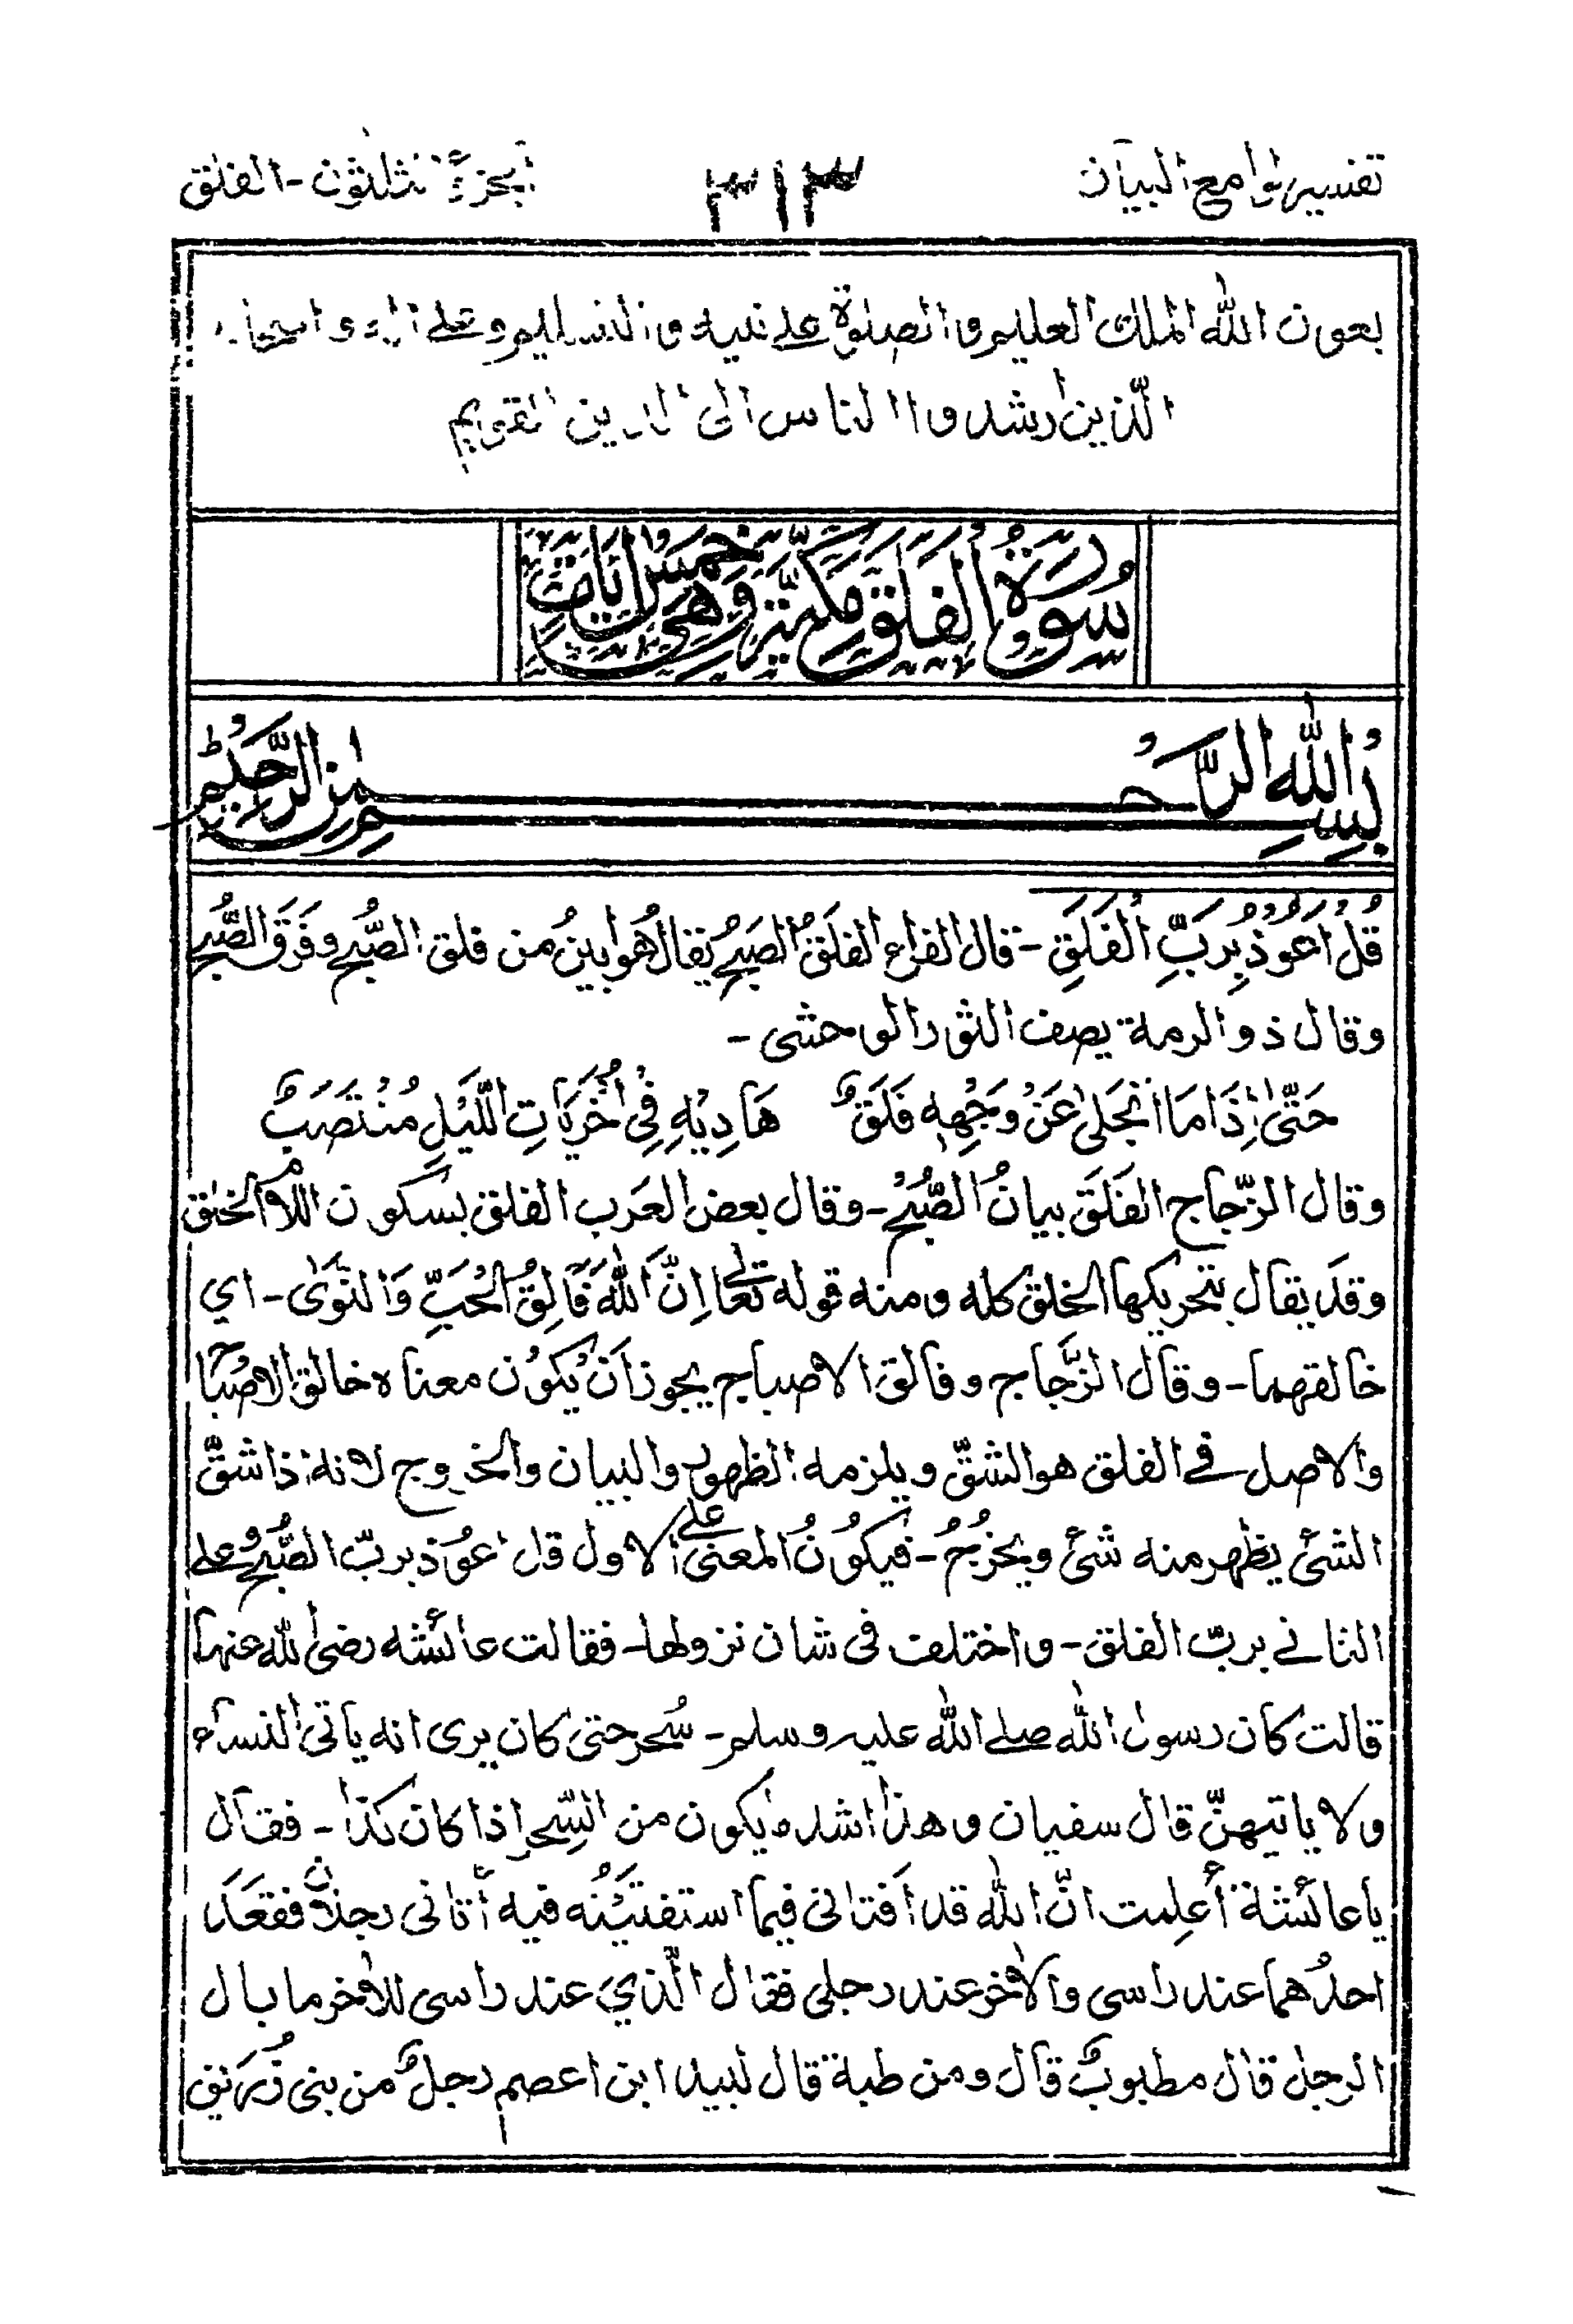 تفسير لوامع البيان
٣١٣
الجزء الثلثون - الفلق
بعون الله الملك العليم و الصلوة على نبيه و التسليم وعلى اله و اصحابه
الّذين ارشدوا الناس الى الدين القويم
سُوْرَةُ الْفَلَقِ مَكِّيَّةٌ وَهِيَ خَمْسُ اٰيَاتٍ
بِسْمِ اللهِ الرَّحْمٰنِ الرَّحِيْمِ
قُلْ اَعُوْذُ بِرَبِّ الْفَلَقِ - قال الفراء الفلَقُ الصبحُ يقالُ هُو ابينُ من فلق الصُّبح وفَرَق الصُّبح
وقال ذو الرمة يصف الثور الوحشى -
حَتّٰى اِذَا مَا انْجَلٰى عَنْ وَجْهِهٖ فَلَقٌ هَادِيْهِ فِىْ اُخْرَيَاتِ اللَّيْلِ مُنْتَصَبٌ
وقال الزّجاج الفَلَق بيانُ الصُّبْح - وقال بعض العَرب الفلق بسكون اللام الخلق
وقد يقال بتحريكها الخلق كله ومنه قوله تعالى اِنَّ اللّٰهَ فَالِقُ الْحَبِّ وَالنَّوٰى - اي
خالقهما - وقال الزَّجاج وفالق الاصباح يجوز اَن يكوْن معناه خالق الاصْباح
والاصل في الفلق هو الشقّ ويلزمه الظهور والبيان والخروج لانه اذا شقّ
الشئ يظهر منه شئ ويخرُجُ - فيكُونُ المعنى على الاول قل اعوذ بربّ الصُّبحِ وعلى
الثاني بربّ الفلق - واختلف فى شان نزولها - فقالت عائشه رضى الله عنها
قالت كان رسول الله صلى الله عليه وسلم - سُحر حتىٰ كان يرى انه ياتى النساء
ولا ياتيهنّ قال سفيان وهذا اشد ما يكون من السِّحر اذا كان كذا - فقال
يا عائشة أعلمت انّ الله قد افتانى فيما استفتيْتُه فيه أتانى رجلان فقعَد
احدُهما عند راسى والاخر عند رجلى فقال الّذي عند راسى للاخر ما بال
الرجل قال مطبوبٌ قال ومن طبه قال لبيد ابن اعصم رجلٌ من بنى زُرَيق